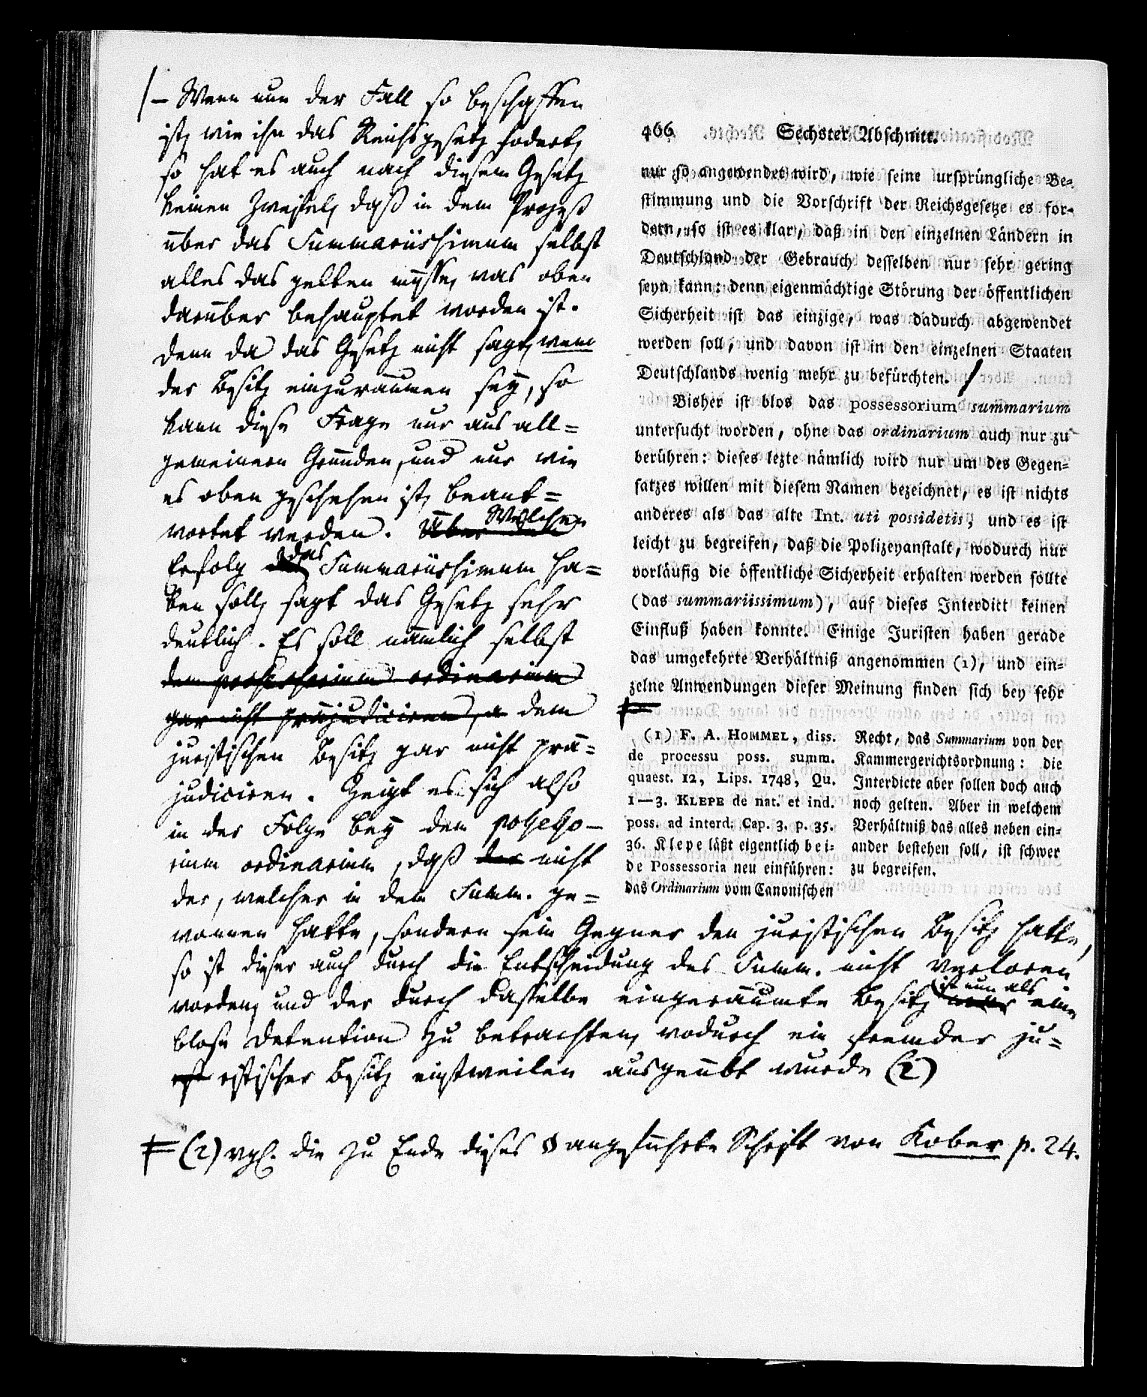 /– Wenn nun der Fall so beschaffen
ist, wie ihn das Reichsgesetz fodert,
so hat es auch nach diesem Gesetz
keinen Zweifel, daß in dem Prozeß
über das Summariissimum selbst
alles das gelten müsse, was oben
darüber behauptet worden ist.
Denn da das Gesetz nicht sagt, wem
der Besitz einzuräumen sey, so
kann diese Frage nur aus all=
gemeinern Gründen, und nur wie
es oben geschehen ist, beant=
wortet werden. Über den Welchen
Erfolg das Summariissimum ha=
ben soll, sagt das Gesetz sehr
deutlich. Es soll nämlich selbst
dem possessorium ordinarium
gar nicht präjudiciren, a dem
juristischen Besitz gar nicht prä=
judiciren. Zeigt es sich also
in der Folge bey dem possesso–
rium ordinarium, daß der nicht
der, welcher in dem Summ. ge=
wonnen hatte, sondern sein Gegner den juristischen Besitz hatte,
so ist dieser auch durch die Entscheidung des Summ. nicht verloren
worden, und der durch dasselbe eingeräumte Besitz ist nun als eine
blose Detention zu betrachten, wodurch ein fremder ju=
ristischer Besitz einstweilen ausgeübt wurde (2)
(2) vgl. die zu Ende dieses § angeführte Schrift von Kober p. 24.
466 Sechster Abschnitt.
nur so angewendet wird, wie seine ursprüngliche Be-
stimmung und die Vorschrift der Reichsgesetze es for-
dern, so ist es klar, daß in den einzelnen Ländern in
Deutschland der Gebrauch desselben nur sehr gering
seyn kann: denn eigenmächtige Störung der öffentlichen
Sicherheit ist das einzige, was dadurch abgewendet
werden soll, und davon ist in den einzelnen Staaten
Deutschlands wenig mehr zu befürchten. /
Bisher ist blos das possessorium summarium
untersucht worden, ohne das ordinarium auch nur zu
berühren: dieses lezte nämlich wird nur um des Gegen-
satzes willen mit diesem Namen bezeichnet, es ist nichts
anderes als das alte Int. uti possidetis, und es ist
leicht zu begreifen, daß die Polizeyanstalt, wodurch nur
vorläufig die öffentliche Sicherheit erhalten werden sollte
(das summariissimum), auf dieses Interditt keinen
Einfluß haben konnte. Einige Juristen haben gerade
das umgekehrte Verhältniß angenommen (1), und ein-
zelne Anwendungen dieser Meinung finden sich bey sehr
(1) F. A. HOMMEL, diss.
de processu poss. summ.
quaest. 12, Lips. 1748, Qu.
1—3. KLEPE de nat. et ind.
poss. ad interd. Cap. 3. p. 35.
36. Klepe läßt eigentlich bei-
de Possessoria neu einführen:
das Ordinarium vom Canonischen
Recht, das Summarium von der
Kammergerichtsordnung: die
Interdicte aber sollen doch auch
noch gelten. Aber in welchem
Verhältniß das alles neben ein-
ander bestehen soll, ist schwer
zu begreifen.